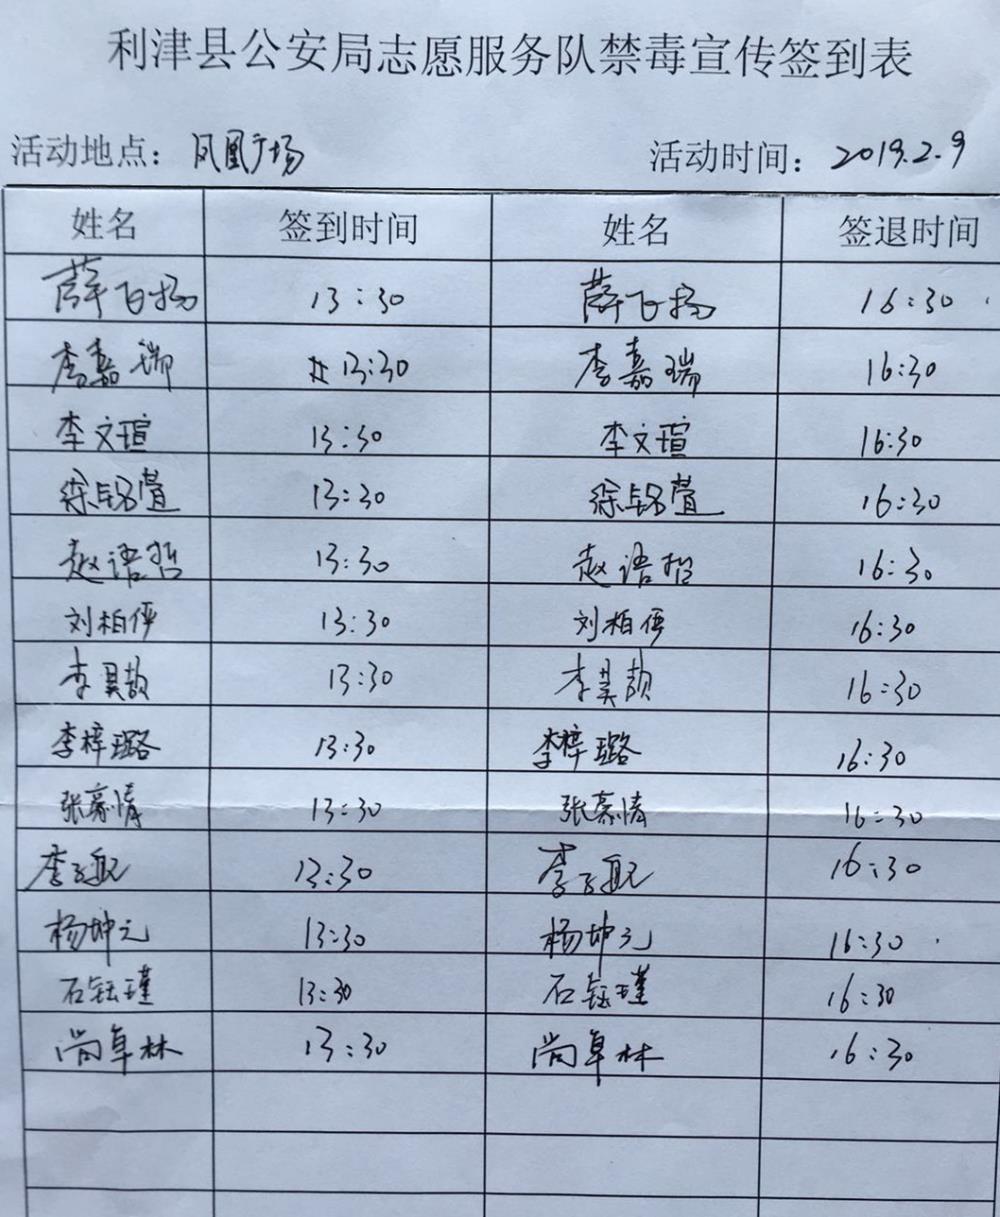 利津县公安局志愿服务队禁毒宣传签到表
活动地点：凤凰广场 活动时间：2019.2.9
姓名 签到时间 姓名 签退时间
薛飞扬 13:30 薛飞扬 16:30
李嘉瑞 13:30 李嘉瑞 16:30
李文瑄 13:30 李文瑄 16:30
徐钰萱 13:30 徐钰萱 16:30
赵语哲 13:30 赵语哲 16:30
刘柏伻 13:30 刘柏伻 16:30
李昊 13:30 李昊 16:30
李梓璐 13:30 李梓璐 16:30
张慕情 13:30 张慕情 16:30
李子航 13:30 李子航 16:30
杨坤元 13:30 杨坤元 16:30
石钰瑾 13:30 石钰瑾 16:30
尚卓林 13:30 尚卓林 16:30